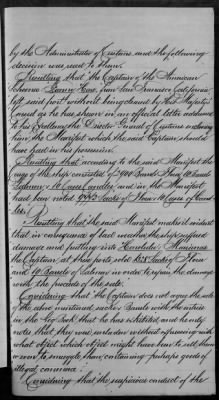 by the Administrator of Customs and the following
decision was sent to them:
"Resulting that the Captain of the American
Schooner Fanny from San Francisco California
left said port without being cleared by Her Majesty's
Consul as he has shown in an official letter addressed
to his Excellency the Director General of Customs enclosing
him the Manifest which the said Captain should
have had in his possession.
"Resulting that according to the said Manifest the
cargo of the ship consisted of 900 Sacks Flour, 10 Barrels
Salmon, 10 Cases Candles and in the Manifest
had been noted Sacks of Flour 10 Cases of
"Resulting that the said Manifest makes it evident
that in consequence of bad weather the ship suffered
damage and putting into Honolulu
the Captain at this port sold Sacks of Flour
and 10 Barrels of Salmon in order to repair the damage
with the proceeds of the sale.
"Considering that the Captain does not agree the sale
of the above mentioned Sacks with the entries
in the Log Book that he has exhibited and he only
notes that they were unladen without expressing with
what object which object might have been to sell them
or even to smuggle them containing perhaps goods of
illegal commerce.
"Considering that the suspicious conduct of the